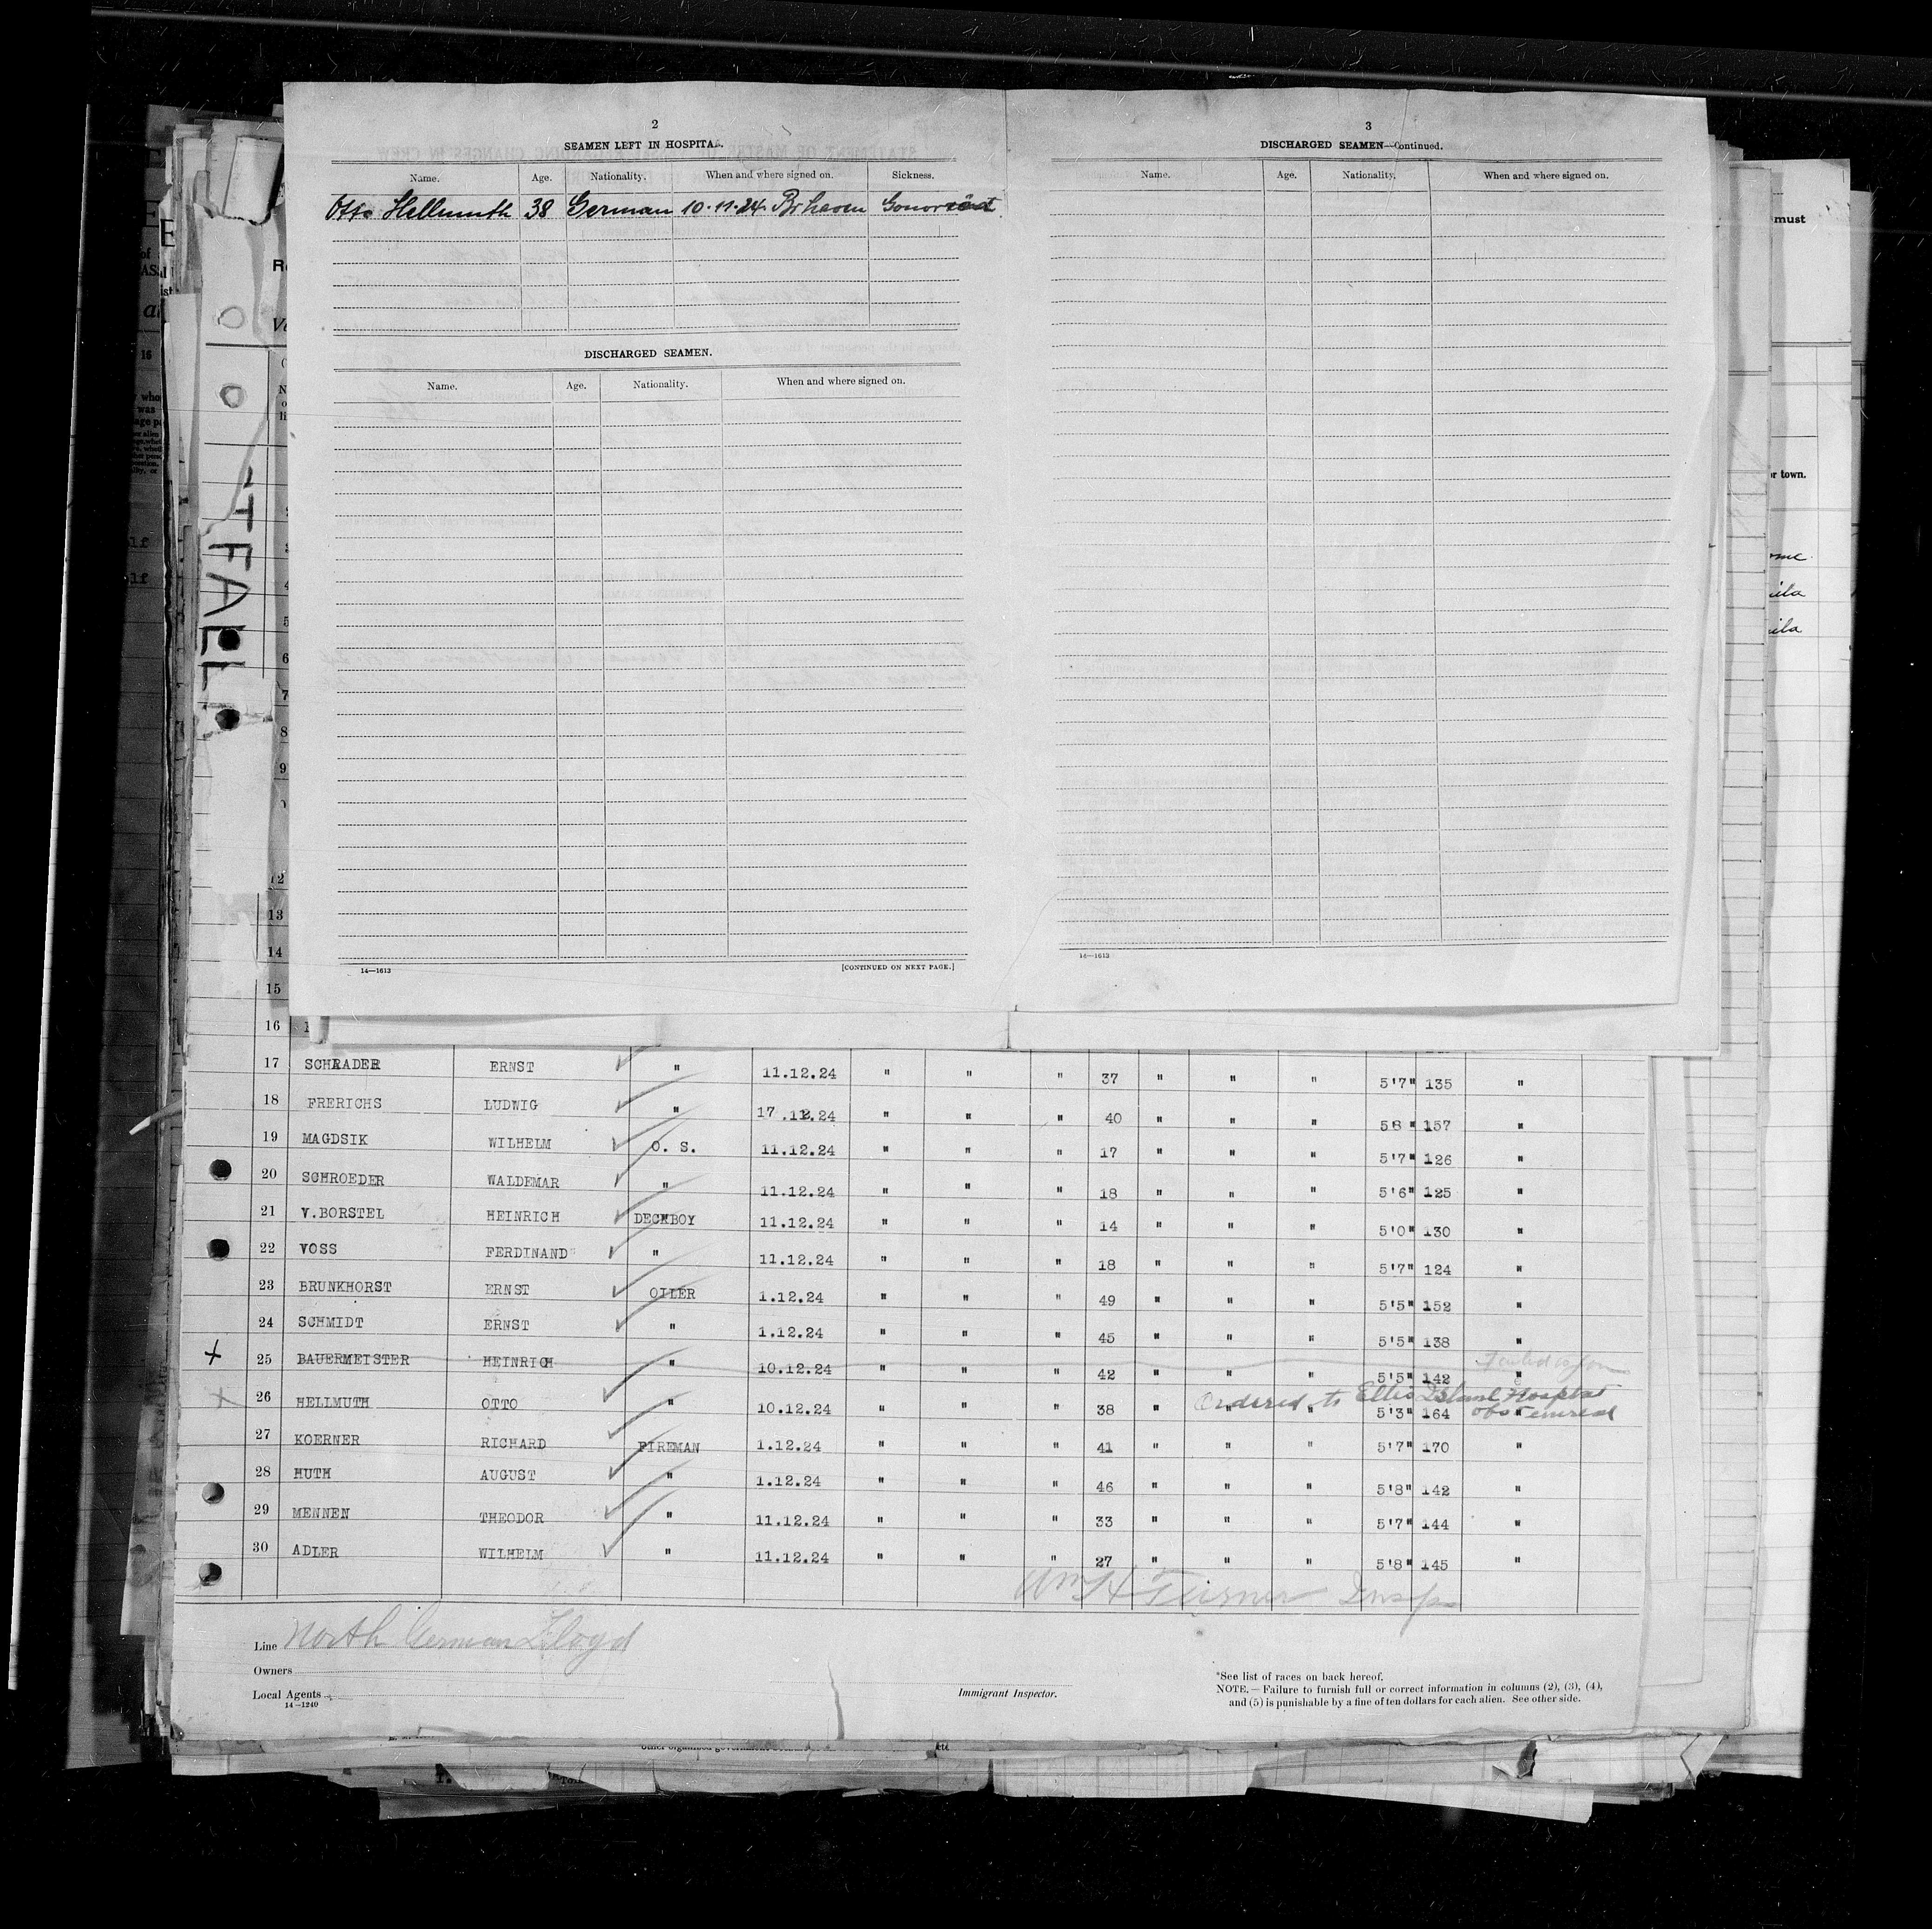 2
SEAMEN LEFT IN HOSPITAL.
Name. Age. Nationality. When and where signed on. Sickness.
Otto Hellmuth 38 German 10·11·24 Brhaven
DISCHARGED SEAMEN.
Name. Age. Nationality. When and where signed on.
14—1613 [CONTINUED ON NEXT PAGE.]
3
DISCHARGED SEAMEN—Continued.
Name. Age. Nationality. When and where signed on.
14—1613
must
or town.
12
13
14
15
16
17 SCHRADER ERNST " 11.12.24 " " " 37 " " " 5'7" 135 "
18 FRERICHS LUDWIG " 17.12.24 " " " 40 " " " 58" 157 "
19 MAGDSIK WILHELM O. S. 11.12.24 " " " 17 " " " 5'7" 126 "
20 SCHROEDER WALDEMAR " 11.12.24 " " " 18 " " " 5'6" 125 "
21 V.BORSTEL HEINRICH DECKBOY 11.12.24 " " " 14 " " " 5'0" 130 "
22 VOSS FERDINAND " 11.12.24 " " " 18 " " " 5'7" 124 "
23 BRUNKHORST ERNST OILER 1.12.24 " " " 49 " " " 5'5" 152 "
24 SCHMIDT ERNST " 1.12.24 " " " 45 " " " 5'5" 138 "
25 BAUERMEISTER HEINRICH " 10.12.24 " " " 42 " " " 5'5" 142 "
Ordered to Ellis Island Hospital
26 HELLMUTH OTTO " 10.12.24 " " " 38 " " " 5'3" 164 "
27 KOERNER RICHARD FIREMAN 1.12.24 " " " 41 " " " 5'7" 170 "
28 HUTH AUGUST " 1.12.24 " " " 46 " " " 5'8" 142 "
29 MENNEN THEODOR " 11.12.24 " " " 33 " " " 5'7" 144 "
30 ADLER WILHELM " 11.12.24 " " " 27 " " " 5'8" 145 "
Wm H Turner Insp
Line North German Lloyd
Owners
Local Agents
14—1240
Immigrant Inspector.
*See list of races on back hereof.
NOTE.—Failure to furnish full or correct information in columns (2), (3), (4),
and (5) is punishable by a fine of ten dollars for each alien. See other side.